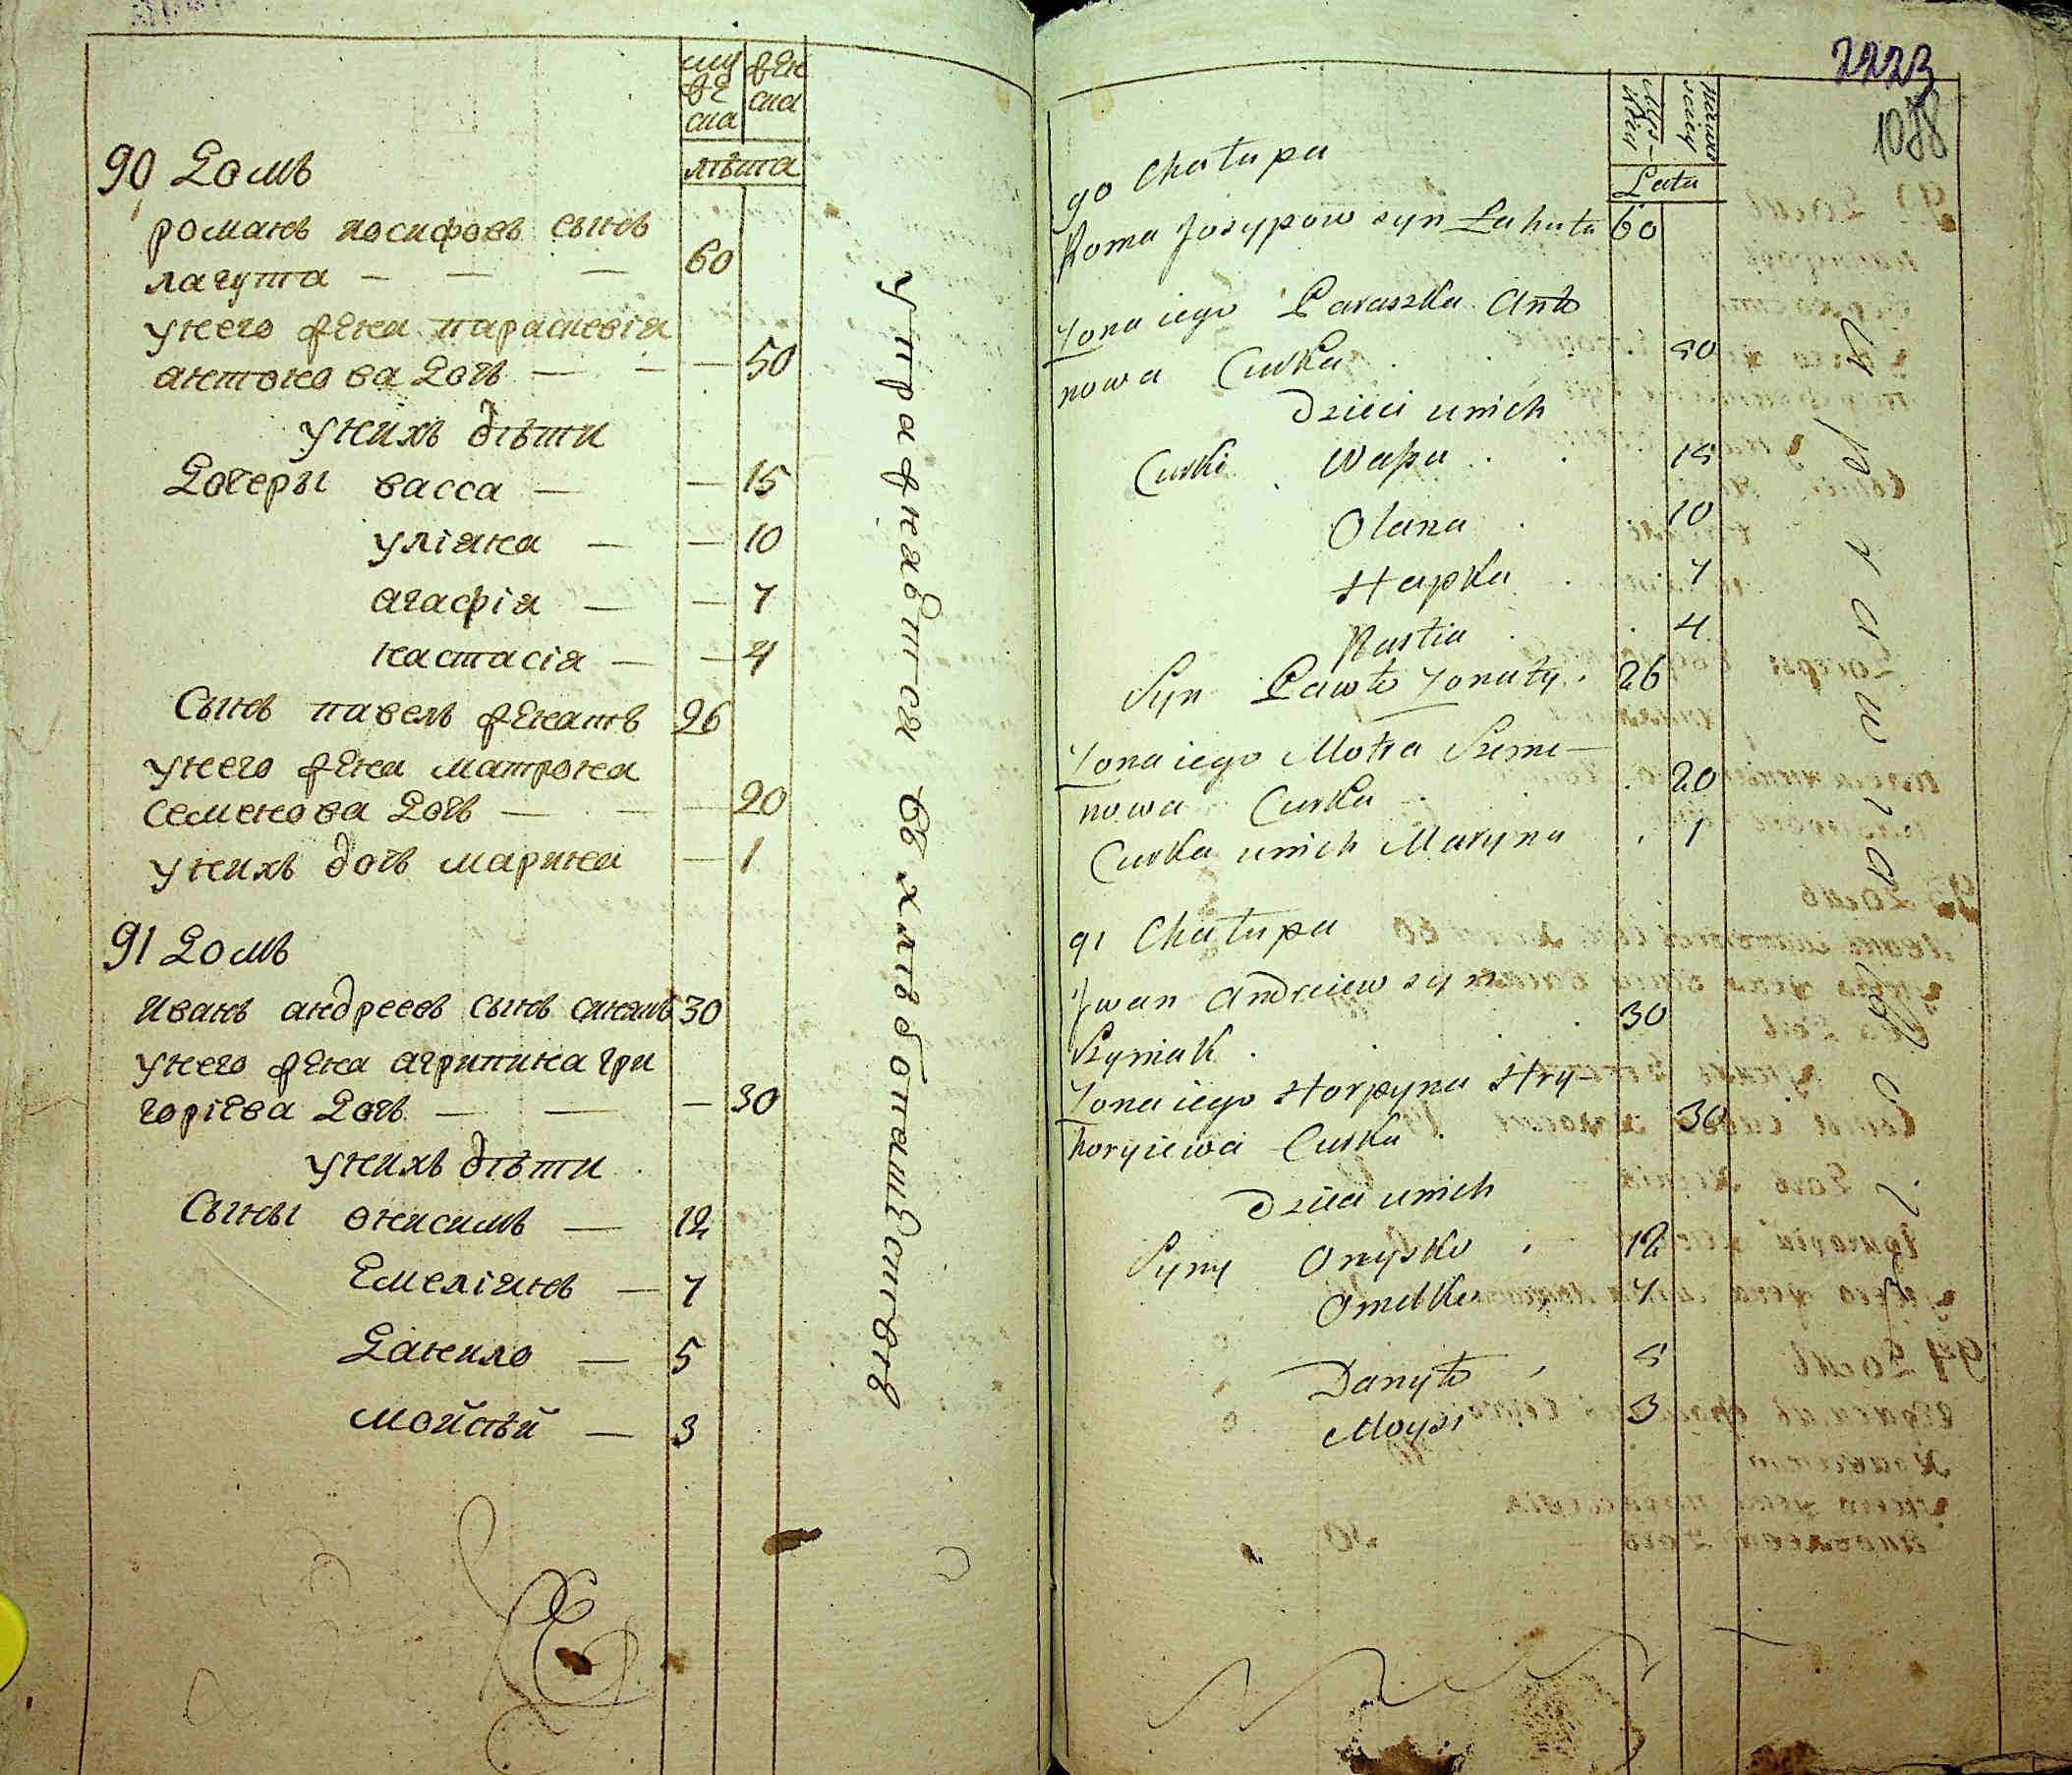 муже ска
жен ска
лѣта
90 Домъ
романъ иосифовъ сынъ
лагута — — — 60
унего жена параскевiя
антонова дочь — — — 50
унихъ дѣти
Дочеры васса — — 15
улiяна — — 10
агафiя — — 7
настасiя — — 4
Сынъ павелъ женатъ 26
унего жена матрона
семенова дочь — — — 20
унихъ дочь марина — 1
91 Домъ
иванъ андреевъ сынъ синякъ 30
унего жена агрипина гри
горiева дочь — — — 30
унихъ дѣти
Сыны онисимъ — 12
Емелiянъ — 7
Данило — 5
мойсѣй — 3
упражнявшся въ хлѣбопашествѣ
2223
1088
Lata
90 Chałupa
Roma Josypow syn Łahuta 60
Żona iego Paraszka Anto
nowa Curka . . . . 50
Dzieci unich
Curki Wasa . . 15
Olana . . 10
Hapka . 7
Nastia . . 4
Syn Pawło Żonaty . 26
Żona iego Motra Seme–
nowa Curka . . . 20
Curka unich Maryna . 1
91 Chałupa
Jwan Andreiew syn
Szyniak . . . 30
Żona iego Horpyna Hry–
horyiewa Curka . 30
Dzieci unich
Syny Onysko . 12
Omelko 7
Danyło 5
Moysi 3